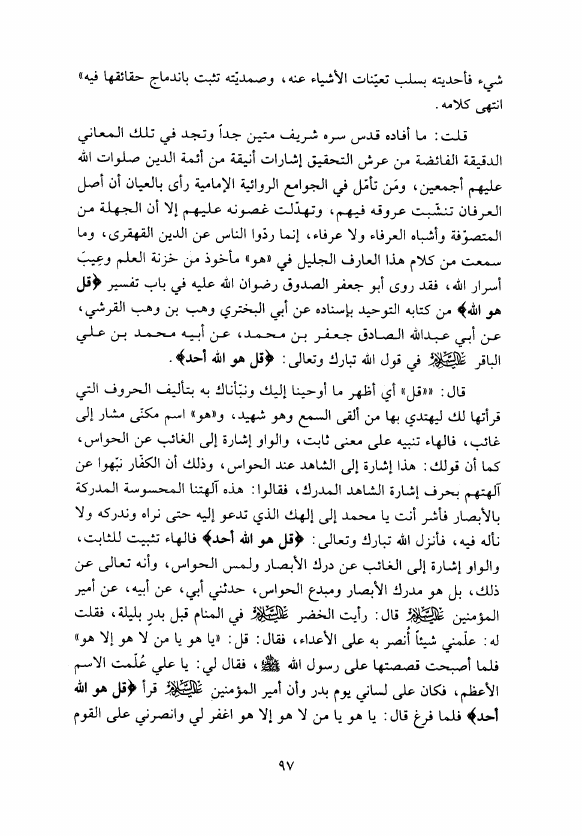 شيء فأحديته بسلب تعيّنات الأشياء عنه، وصمديّته تثبت باندماج حقائقها فيه»
انتهى كلامه.
قلت: ما أفاده قدس سره شريف متين جداً وتجد في تلك المعاني
الدقيقة الفائضة من عرش التحقيق إشارات أنيقة من أئمة الدين صلوات الله
عليهم أجمعين، ومَن تأمّل في الجوامع الروائية الإمامية رأى بالعيان أن أصل
العرفان تنشّبت عروقه فيهم، وتهدّلت غصونه عليهم إلا أن الجهلة من
المتصوّفة وأشباه العرفاء ولا عرفاء، إنما ردّوا الناس عن الدين القهقرى، وما
سمعت من كلام هذا العارف الجليل في «هو» مأخوذ من خزنة العلم وعِيبَ
أسرار الله، فقد روى أبو جعفر الصدوق رضوان الله عليه في باب تفسير ﴿قل
هو الله﴾ من كتابه التوحيد بإسناده عن أبي البختري وهب بن وهب القرشي،
عن أبي عبدالله الصادق جعفر بن محمد، عن أبيه محمد بن علي
الباقر عَلَيْهِ السَّلَام في قول الله تبارك وتعالى: ﴿قل هو الله أحد﴾.
قال: ««قل» أي أظهر ما أوحينا إليك ونبّأناك به بتأليف الحروف التي
قرأتها لك ليهتدي بها من ألقى السمع وهو شهيد، و«هو» اسم مكنّى مشار إلى
غائب، فالهاء تنبيه على معنى ثابت، والواو إشارة إلى الغائب عن الحواس،
كما أن قولك: هذا إشارة إلى الشاهد عند الحواس، وذلك أن الكفّار نبّهوا عن
آلهتهم بحرف إشارة الشاهد المدرك، فقالوا: هذه آلهتنا المحسوسة المدركة
بالأبصار فأشر أنت يا محمد إلى إلهك الذي تدعو إليه حتى نراه وندركه ولا
نأله فيه، فأنزل الله تبارك وتعالى: ﴿قل هو الله أحد﴾ فالهاء تثبيت للثابت،
والواو إشارة إلى الغائب عن درك الأبصار ولمس الحواس، وأنه تعالى عن
ذلك، بل هو مدرك الأبصار ومبدع الحواس، حدثني أبي، عن أبيه، عن أمير
المؤمنين عَلَيْهِ السَّلَام قال: رأيت الخضر عَلَيْهِ السَّلَام في المنام قبل بدرٍ بليلة، فقلت
له: علّمني شيئاً أُنصر به على الأعداء، فقال: قل: «يا هو يا من لا هو إلا هو»
فلما أصبحت قصصتها على رسول الله ﷺ، فقال لي: يا علي عُلّمت الاسم
الأعظم، فكان على لساني يوم بدر وأن أمير المؤمنين عَلَيْهِ السَّلَام قرأ ﴿قل هو الله
أحد﴾ فلما فرغ قال: يا هو يا من لا هو إلا هو اغفر لي وانصرني على القوم
٩٧